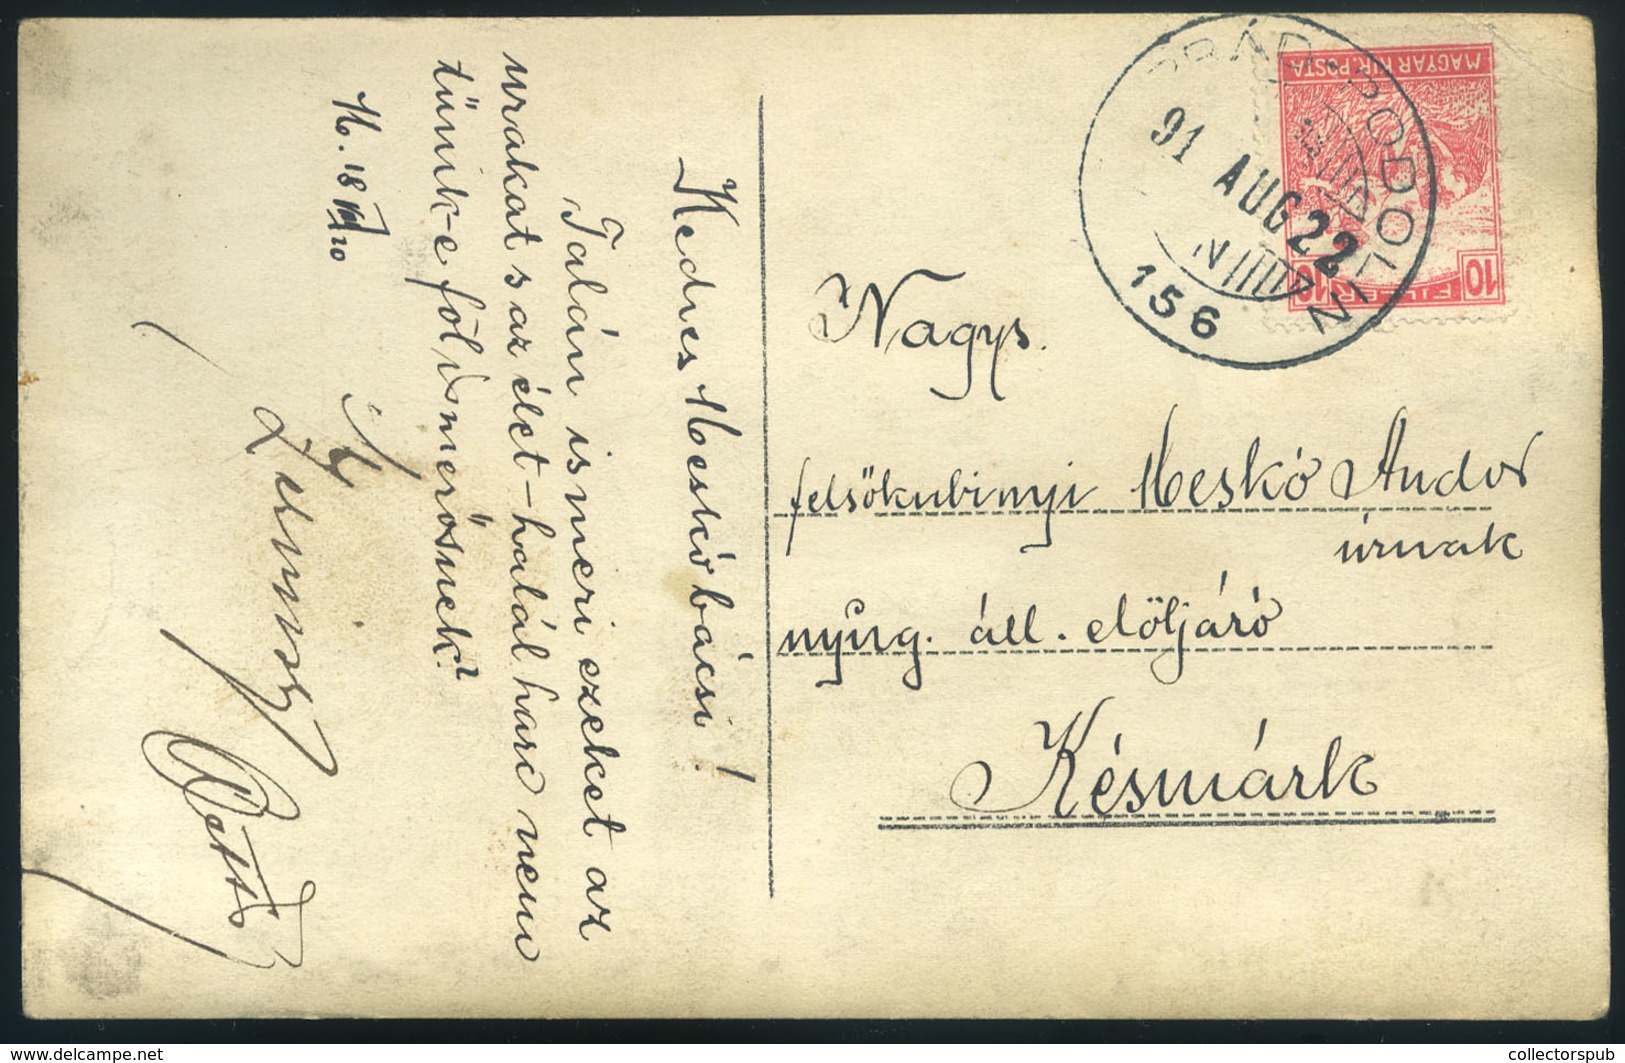 Kedves Meskó bácsi!
Talán ismeri ezeket az
urakat s az élet-halál harc nem
tünik-e föl ismerősnek?
18 VIII/20
Ottó
POPRÁD-PODOLIN
91 AUG 22
156
MAGYAR KIR. POSTA
10 FILLÉR 10
Nagys.
felsőkubinyi Meskó Andor
úrnak
nyug. áll. előljáró
Késmárk
www.delcampe.net
collectorspub